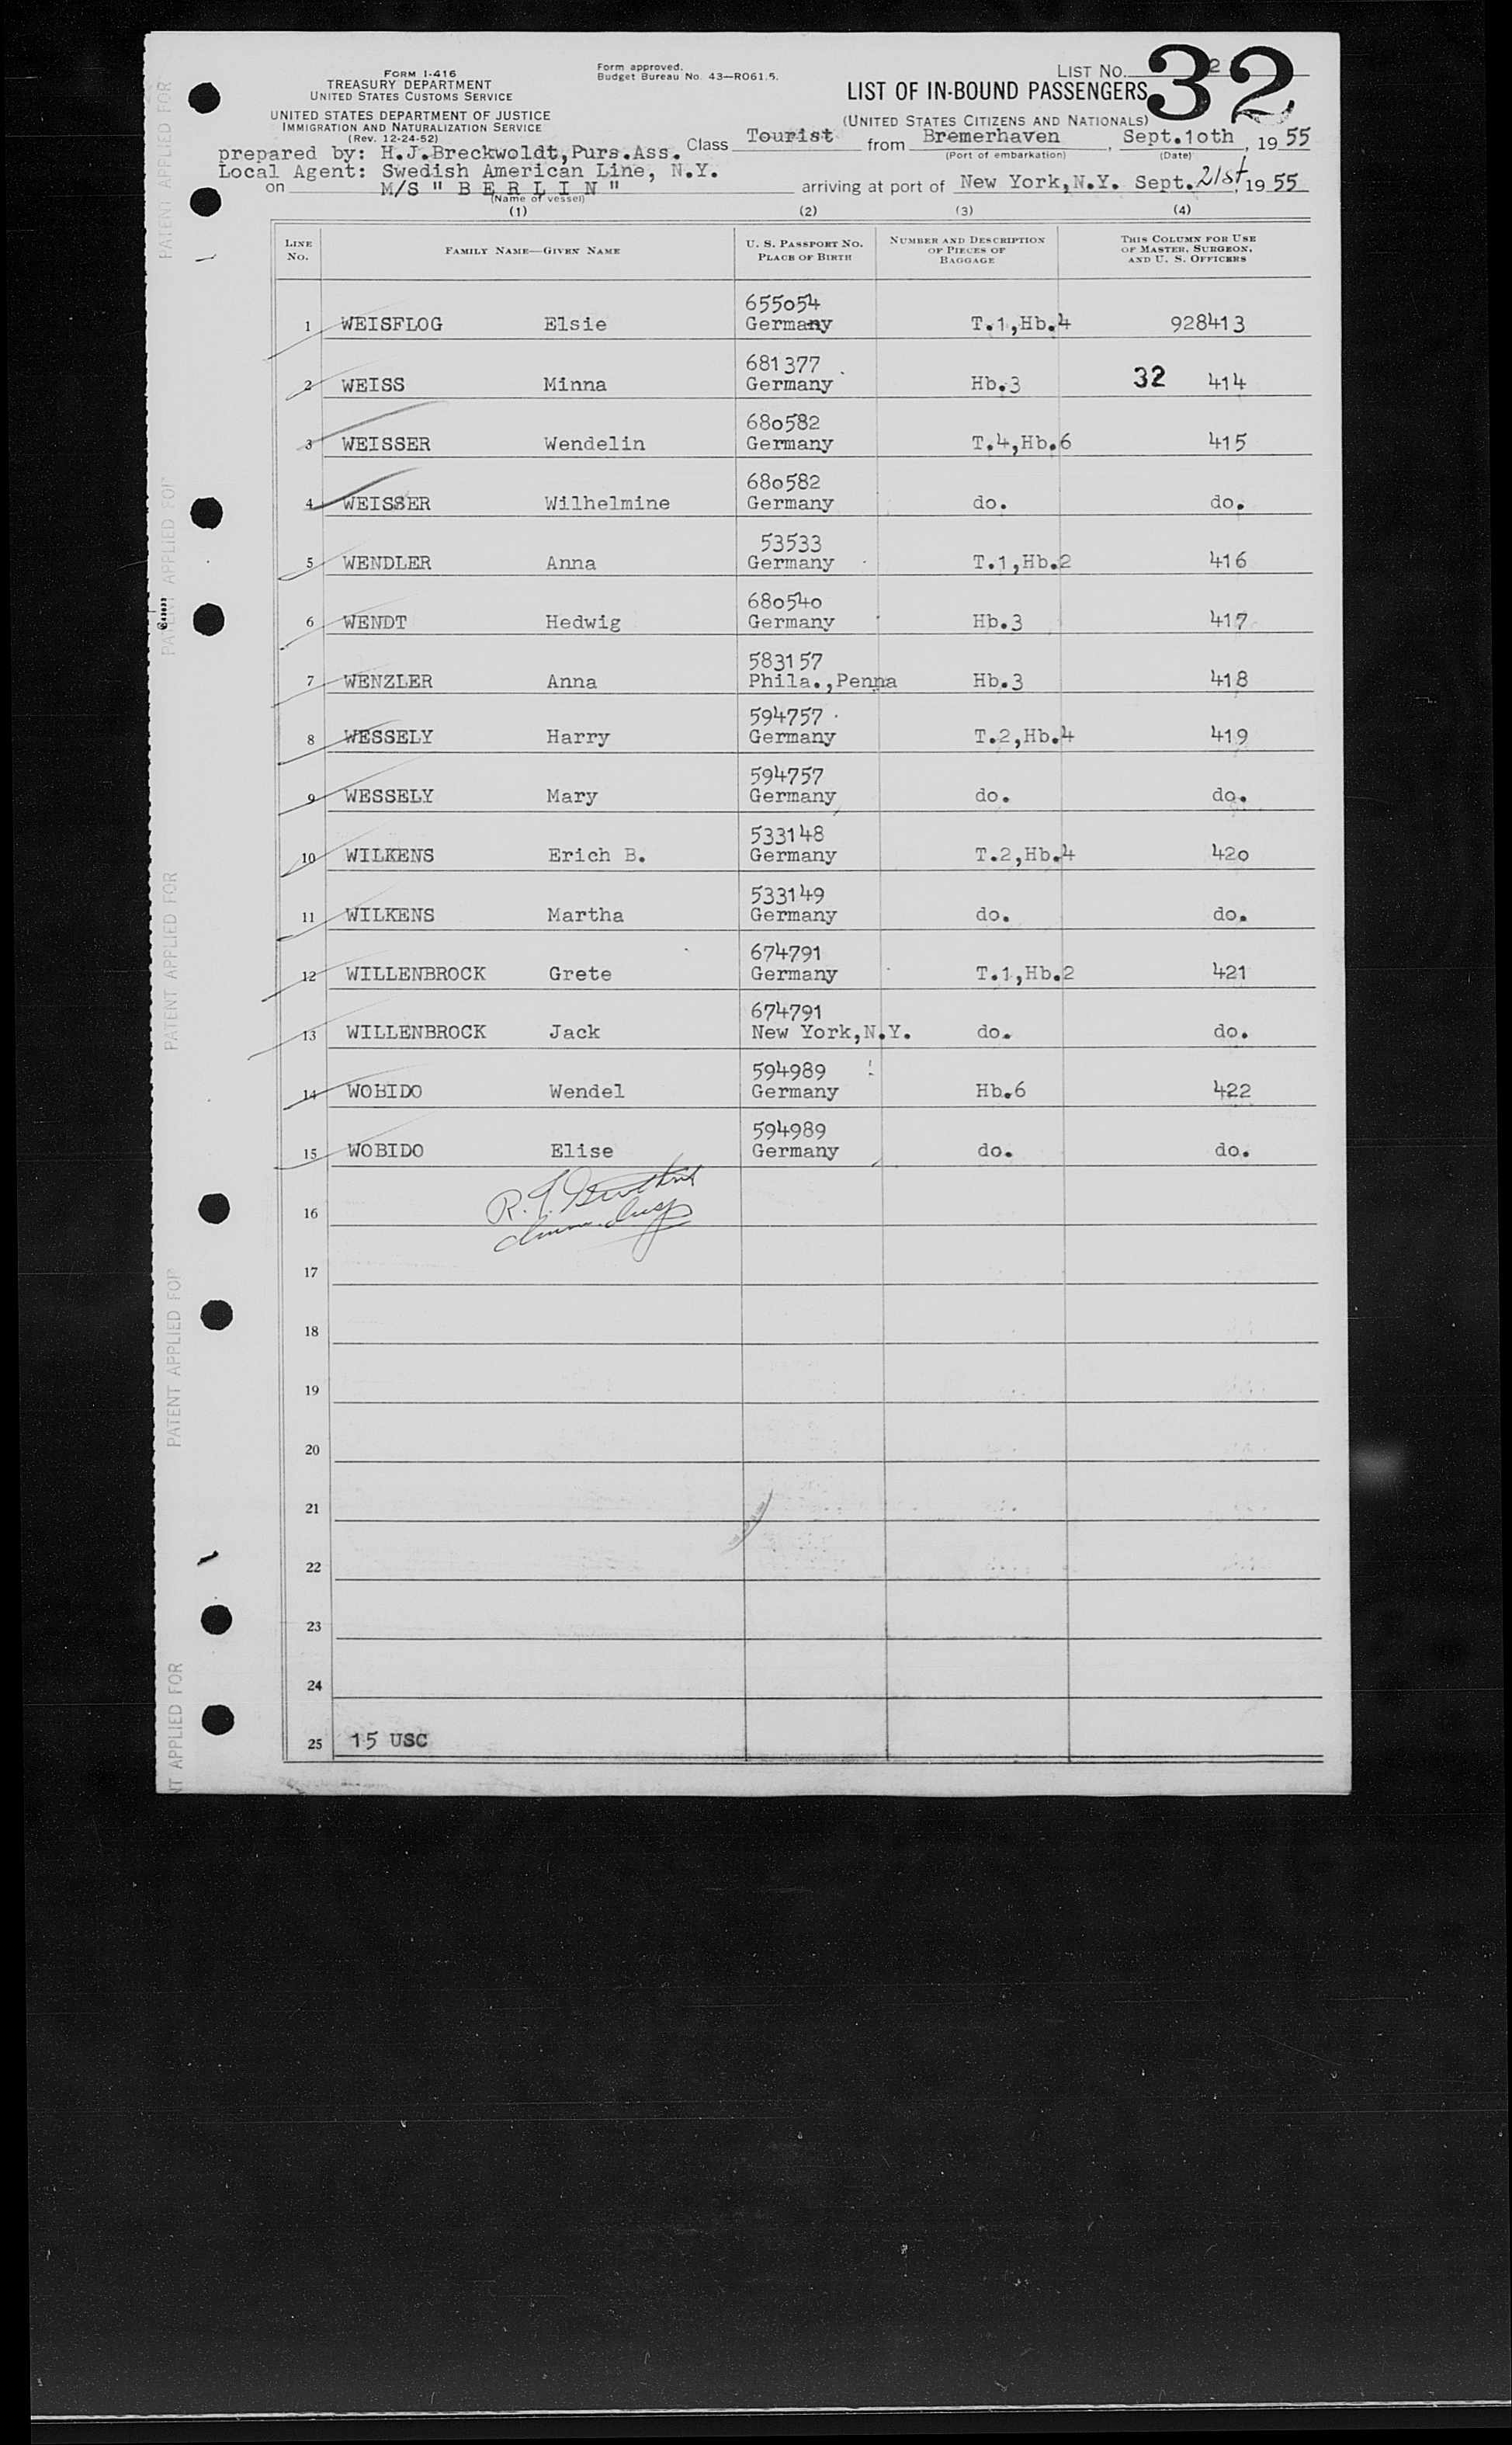 FORM I-416
TREASURY DEPARTMENT
UNITED STATES CUSTOMS SERVICE
UNITED STATES DEPARTMENT OF JUSTICE
IMMIGRATION AND NATURALIZATION SERVICE
(Rev. 12-24-52)
Form approved.
Budget Bureau No. 43—RO61.5.
LIST No. 32
LIST OF IN-BOUND PASSENGERS
(UNITED STATES CITIZENS AND NATIONALS)
prepared by: H.J.Breckwoldt,Purs.Ass. Class Tourist from Bremerhaven, Sept.10th, 1955
(Port of embarkation) (Date)
Local Agent: Swedish American Line, N.Y.
on M/S " B E R L I N " arriving at port of New York,N.Y. Sept.21st, 1955
(Name of vessel)
(1) (2) (3) (4)
LINE NO. FAMILY NAME—GIVEN NAME U. S. PASSPORT NO. PLACE OF BIRTH NUMBER AND DESCRIPTION OF PIECES OF BAGGAGE THIS COLUMN FOR USE OF MASTER, SURGEON, AND U. S. OFFICERS
655054
1 WEISFLOG Elsie Germany T.1,Hb.4 928413
681377
2 WEISS Minna Germany Hb.3 32 414
680582
3 WEISSER Wendelin Germany T.4,Hb.6 415
680582
4 WEISSER Wilhelmine Germany do. do.
53533
5 WENDLER Anna Germany T.1,Hb.2 416
680540
6 WENDT Hedwig Germany Hb.3 417
583157
7 WENZLER Anna Phila.,Penna Hb.3 418
594757
8 WESSELY Harry Germany T.2,Hb.4 419
594757
9 WESSELY Mary Germany do. do.
533148
10 WILKENS Erich B. Germany T.2,Hb.4 420
533149
11 WILKENS Martha Germany do. do.
674791
12 WILLENBROCK Grete Germany T.1,Hb.2 421
674791
13 WILLENBROCK Jack New York,N.Y. do. do.
594989
14 WOBIDO Wendel Germany Hb.6 422
594989
15 WOBIDO Elise Germany do. do.
16
17
18
19
20
21
22
23
24
25 15 USC
PATENT APPLIED FOR
PATENT APPLIED FOR
PATENT APPLIED FOR
PATENT APPLIED FOR
NT APPLIED FOR